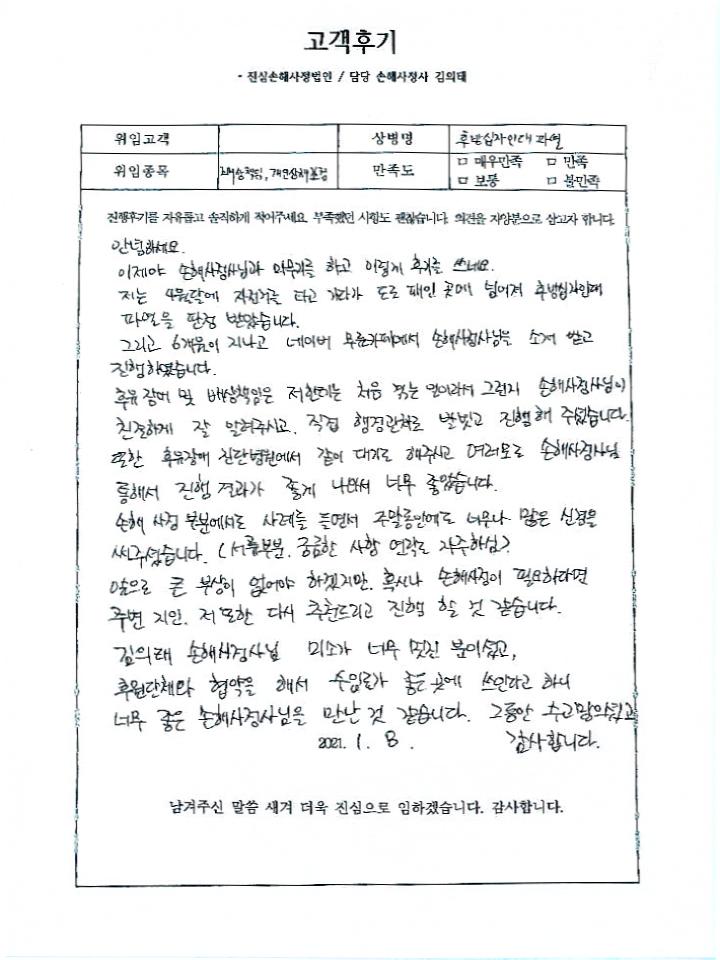 고객후기
- 진심손해사정법인 / 담당 손해사정사 김의태
위임고객
상병명 후방십자인대 파열
위임종목 배상책임, 개인상해보험
만족도 □ 매우만족 □ 만족
□ 보통 □ 불만족
진행후기를 자유롭고 솔직하게 적어주세요. 부족했던 사항도 괜찮습니다. 의견을 자양분으로 삼고자 합니다.
안녕하세요.
이제야 손해사정사님과 마무리를 하고 이렇게 후기를 쓰네요.
저는 4월달에 자전거를 타고 가다가 도로 패인 곳에 넘어져 후방십자인대
파열을 판정 받았습니다.
그리고 6개월이 지나고 네이버 무료카페에서 손해사정사님을 소개 받고
진행하였습니다.
후유장애 및 배상책임은 저한테는 처음 겪는 일이라서 그런지 손해사정사님이
친절하게 잘 알려주시고, 직접 행정관처로 발벗고 진행해 주셨습니다.
또한 후유장애 진단병원에서 같이 대기도 해주시고 여러모로 손해사정사님
통해서 진행 결과가 좋게 나와서 너무 좋았습니다.
손해 사정 부분에서도 사례를 들면서 주말동안에도 너무나 많은 신경을
써주셨습니다. (서류부분, 궁금한 사항 연락도 자주하심)
앞으로 큰 부상이 없어야 하겠지만, 혹시나 손해사정이 필요하다면
주변 지인, 저 또한 다시 추천드리고 진행 할 것 같습니다.
김의태 손해사정사님 미소가 너무 멋진 분이셨고,
후원단체와 협약을 해서 수임료가 좋은 곳에 쓰인다고 하니
너무 좋은 손해사정사님을 만난 것 같습니다. 그동안 수고많으셨고
2021. 1. 8. 감사합니다.
남겨주신 말씀 새겨 더욱 진심으로 임하겠습니다. 감사합니다.